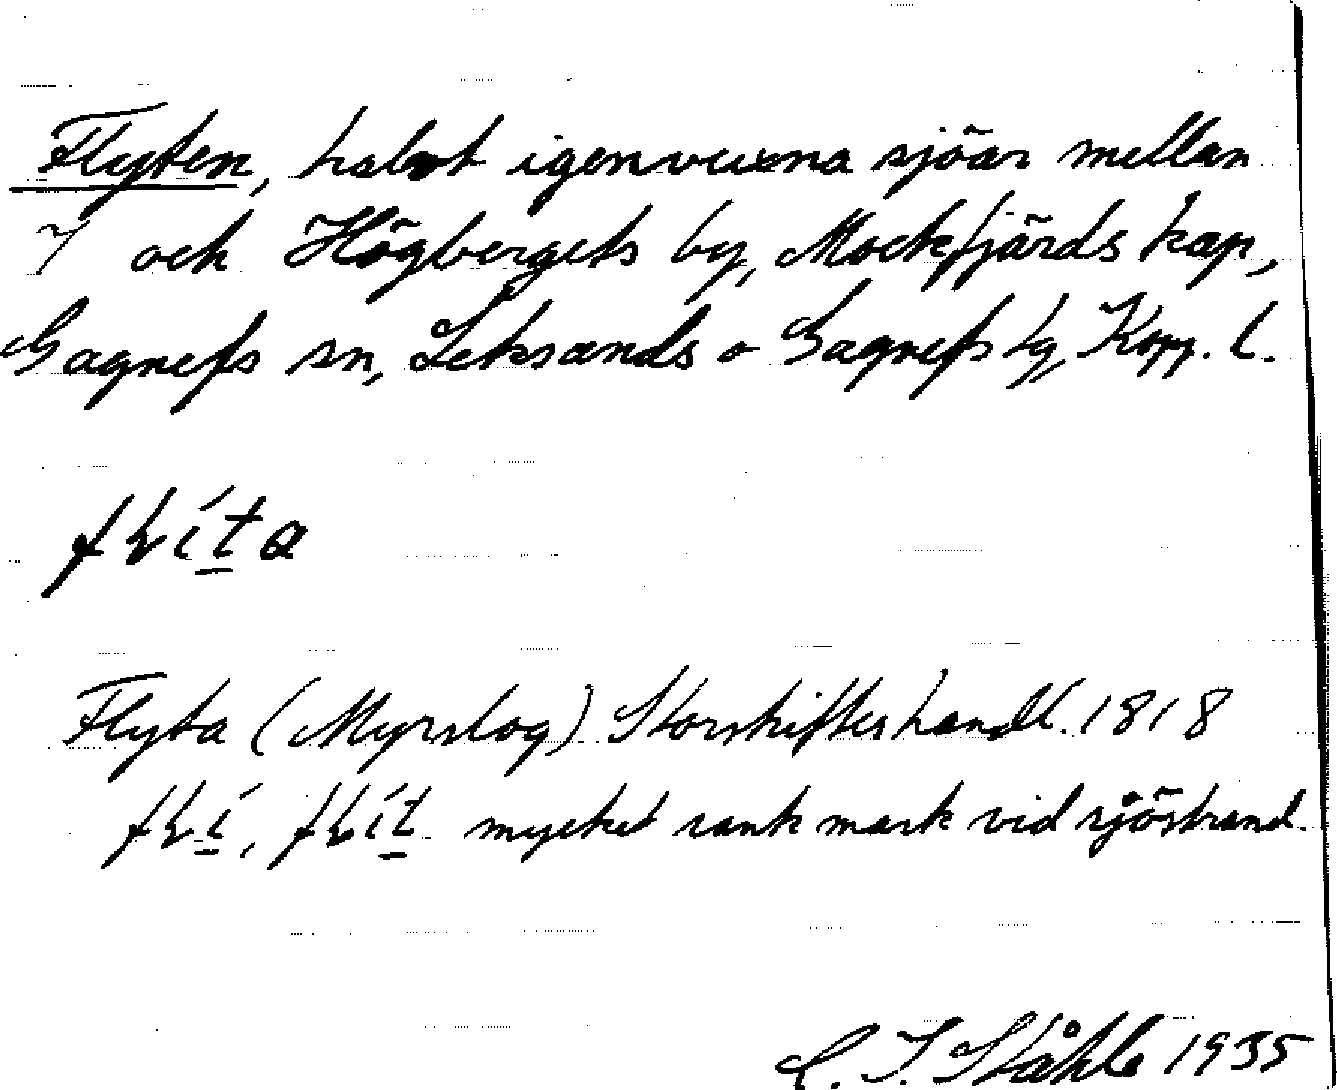 Flyten, halvt igenvuxna sjöar mellan
7 och Högbergets by, Mockfjärds kap,
Gagnefs sn, Leksands o Gagnefs tg, Kopp. l.
Flyta (Myrslog) Storskifteshandl. 1818
mycket sank mark vid sjöstrand.
C. I. Ståhle 1935